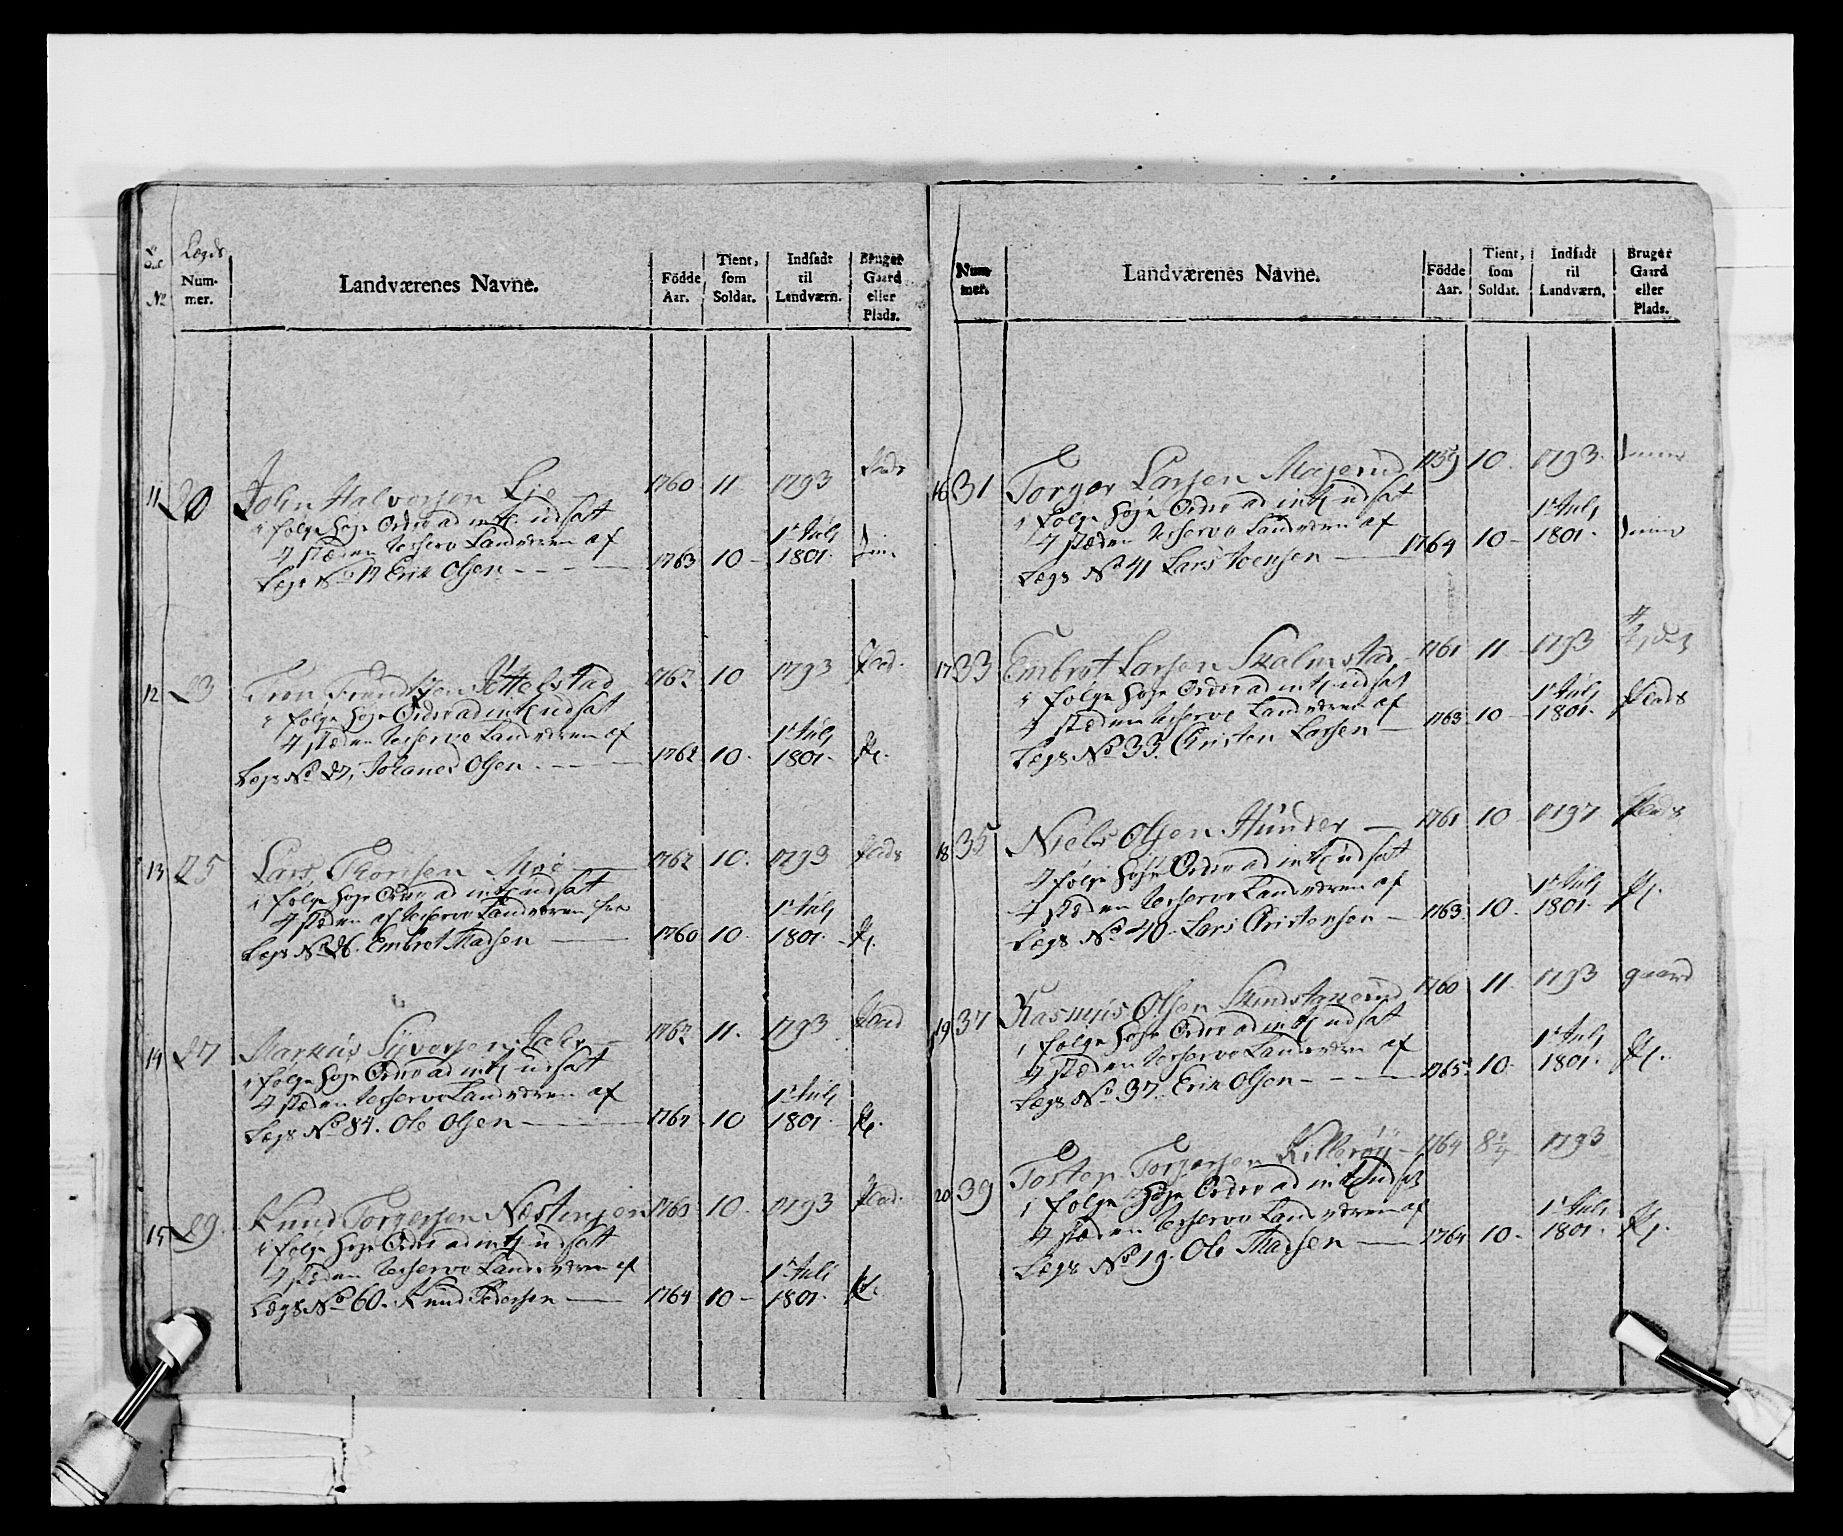 Lægds
No
Num-
mer.
Landværenes Navne.
Födde
Aar.
Tient,
som
Soldat.
Indsadt
til
Landværn.
Bruger
Gaard
eller
Plads.
11 20 John Halvorsen Lie 1760 11 1793 Plads
i følge Høje Ordre ad intr udsat
4 steden reserve Landværen af
Lægs No 19 Erik Olsen 1763 10 1r Juli 1801
12 23 Tron Trondsen 1762 10 1793 Plad.
i følge Høje Ordre ad intr udsat
4 steden reserve Landværen af
Lægs No 27, Johanes Olsen 1762 10. 1r Juli 1801. Pl.
13 25 Lars Thorsen Moe 1762 10. 1793 Plads
i følge Høje Ordre ad intr udsat
4 steden af reserve Landværen fra
Lægs No 26. Embret Madsen 1760 10. 1r Juli 1801. Pl.
14 27 Markus Syversen 1762 11. 1793 Plad
i følge Høje Ordre ad intr udsat
4 steden reserve Landværen af
Lægs No 84. Ole Olsen 1764 10 1r Juli 1801. Pl.
15 29. Knud Torgersen 1760 10. 1793 Plad.
i følge Høje Ordre ad intr udsat
4 steden reserve Landværen af
Lægs No 60. Knud Pedersen 1764 10 1r Juli 1801. Pl.
Num-
mer.
Landværenes Navne.
Födde
Aar.
Tient,
som
Soldat.
Indsadt
til
Landværn.
Bruger
Gaard
eller
Plads.
16 31 Torger Larsen 1759 10. 1793.
i følge Høje Ordre ad intr udsat
4 steden reserve Landværen af
Lægs No 41 Lars 1764 10 1r Juli 1801.
17 33 Embret Larsen Skalmstad 1761 11 1793
i følge Høje Ordre ad intr udsat
4 steden reserve Landværen af
Lægs No 33. Christen Larsen 1763 10 1r Juli 1801. Plads
18 35 Niels Olsen Hunder 1761 10 1797 Plads
i følge Høje Ordre ad intr udsat
4 steden reserve Landværen af
Lægs No 40. Lars Christensen 1763 10. 1r Juli 1801. Pl.
19 37 Rasmus Olsen 1760 11. 1793 gaard
i følge Høje Ordre ad intr udsat
4 steden reserve Landværen af
Lægs No 37. Erik Olsen 1765 10. 1r Juli 1801. Pl.
20 39 Tosten Torgersen 1764 8 1/4 1793
i følge Høje Ordre ad intr udsat
4 steden reserve Landværen af
Lægs No 19. Ole Madsen 1764 10. 1r Juli 1801. Pl.